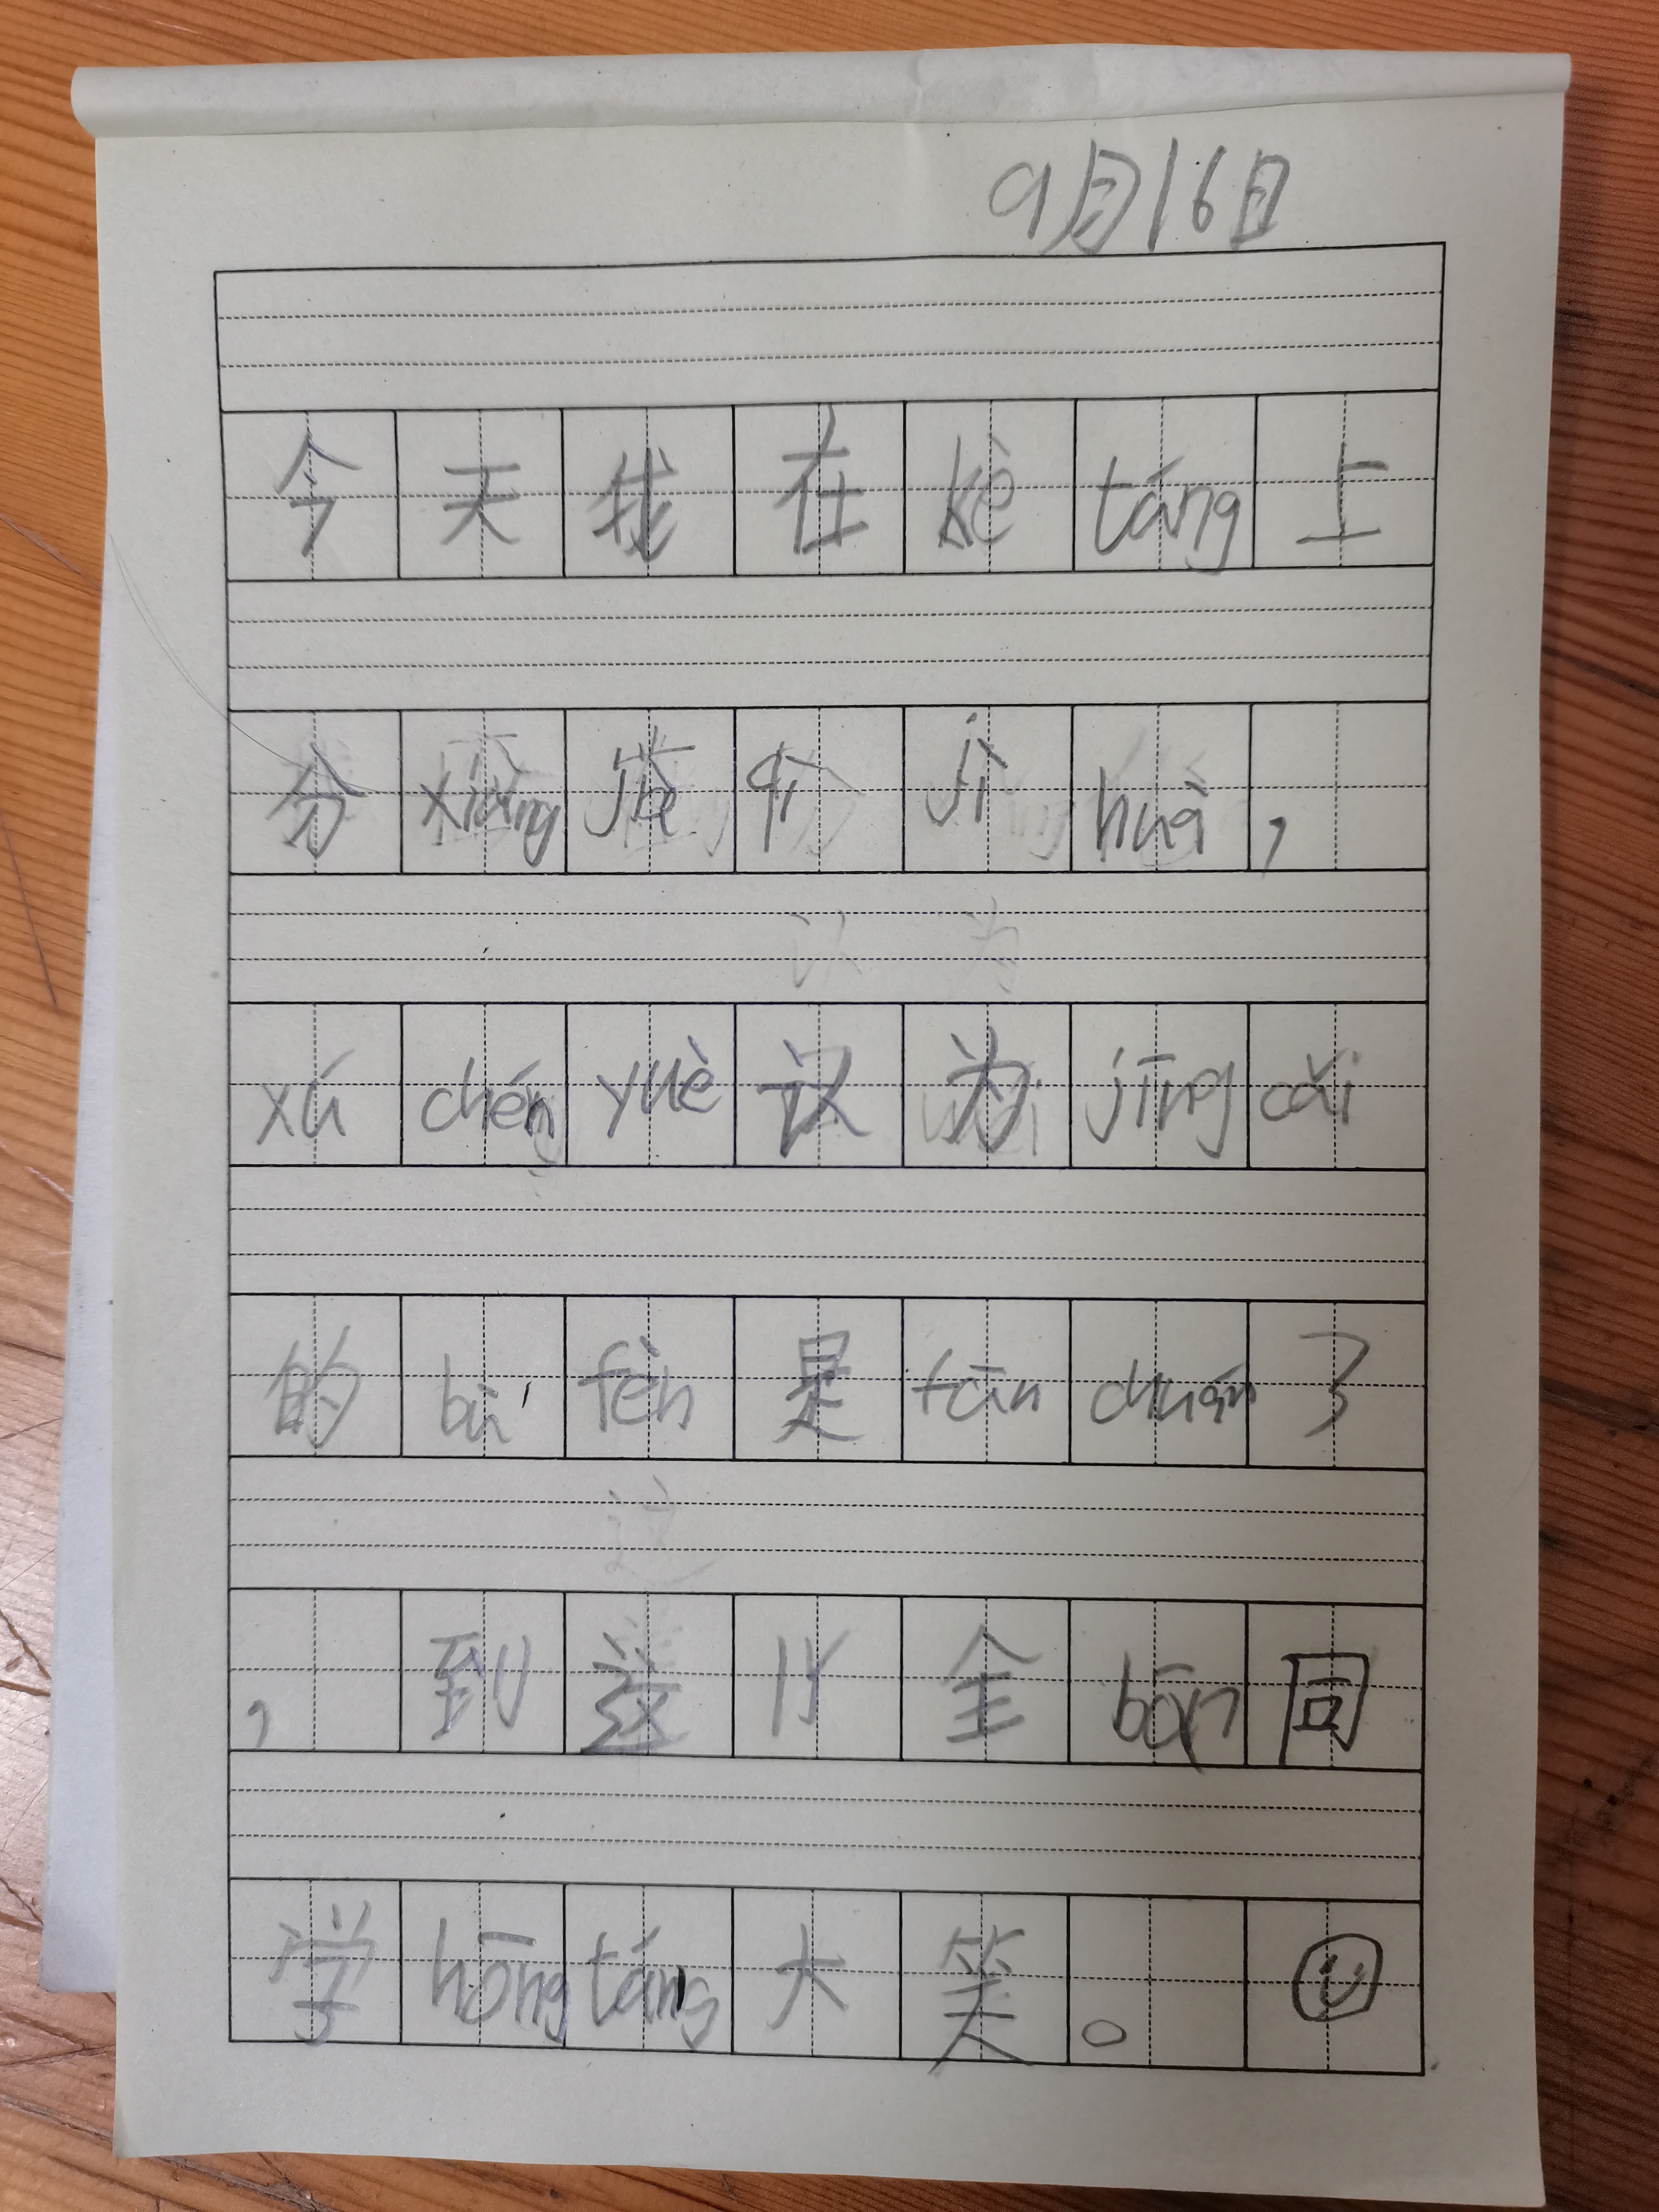 9月16日
今天我在kè táng上
分xiǎng jià qī jì huà，
xú chén yuè 认为jīng cǎi
的bù fèn是tān chuán了
，到这儿全bān同
学hōng táng大笑。